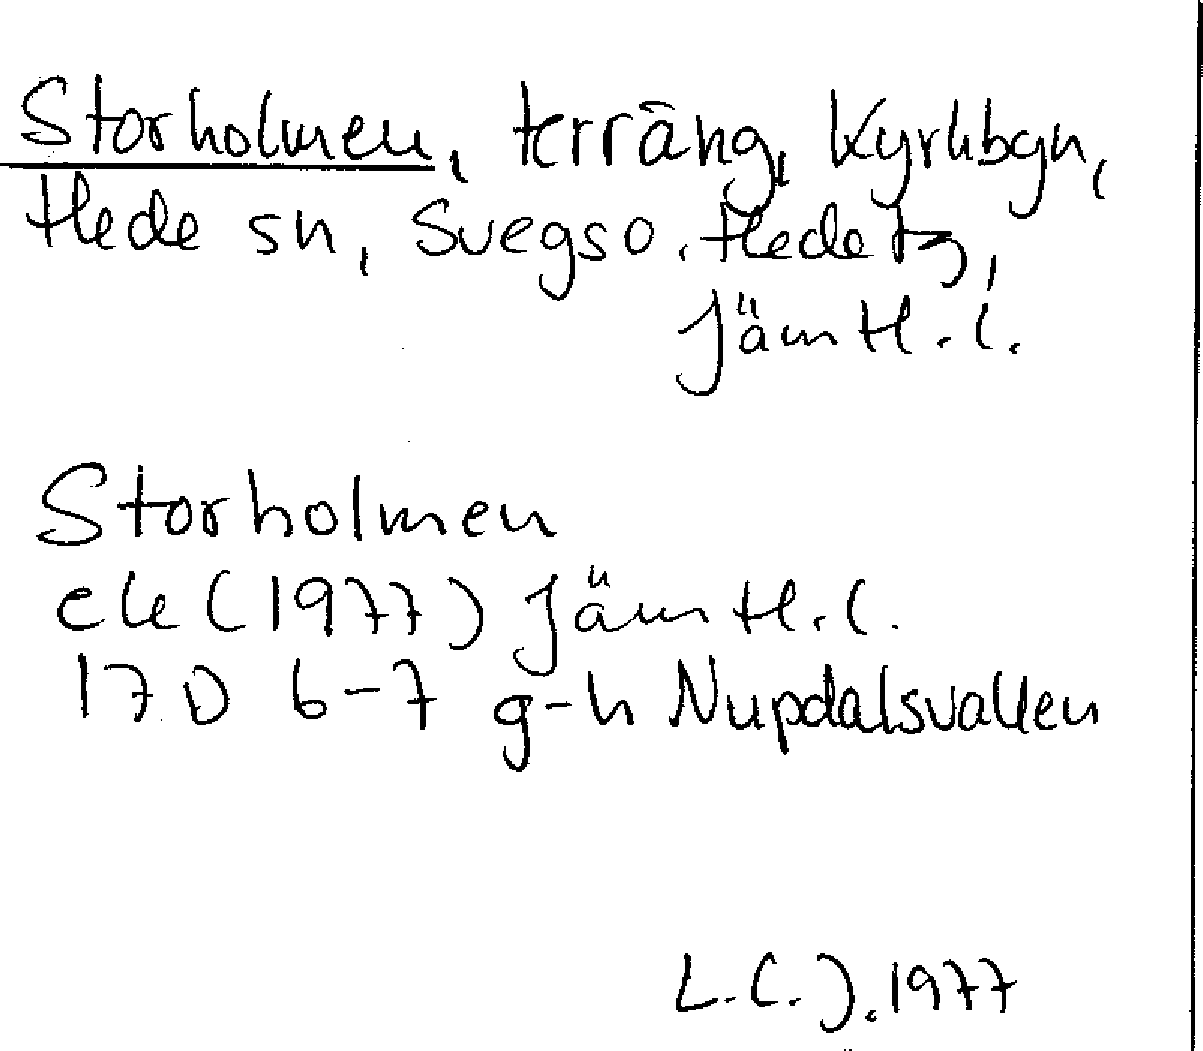 Storholmen, terräng, Kyrkbyn,
Hede sn, Svegs o. Hede tg,
Jämtl. l.
Storholmen
ek (1977) Jämtl. l.
17D 6-7 g-h Nupdalsvallen
L.C.J. 1977